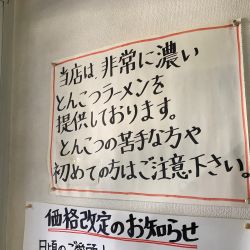 当店は、非常に濃い
とんこつラーメンを
提供しております。
とんこつの苦手な方や
初めての方はご注意下さい。
価格改定のお知らせ
日頃のご愛顧